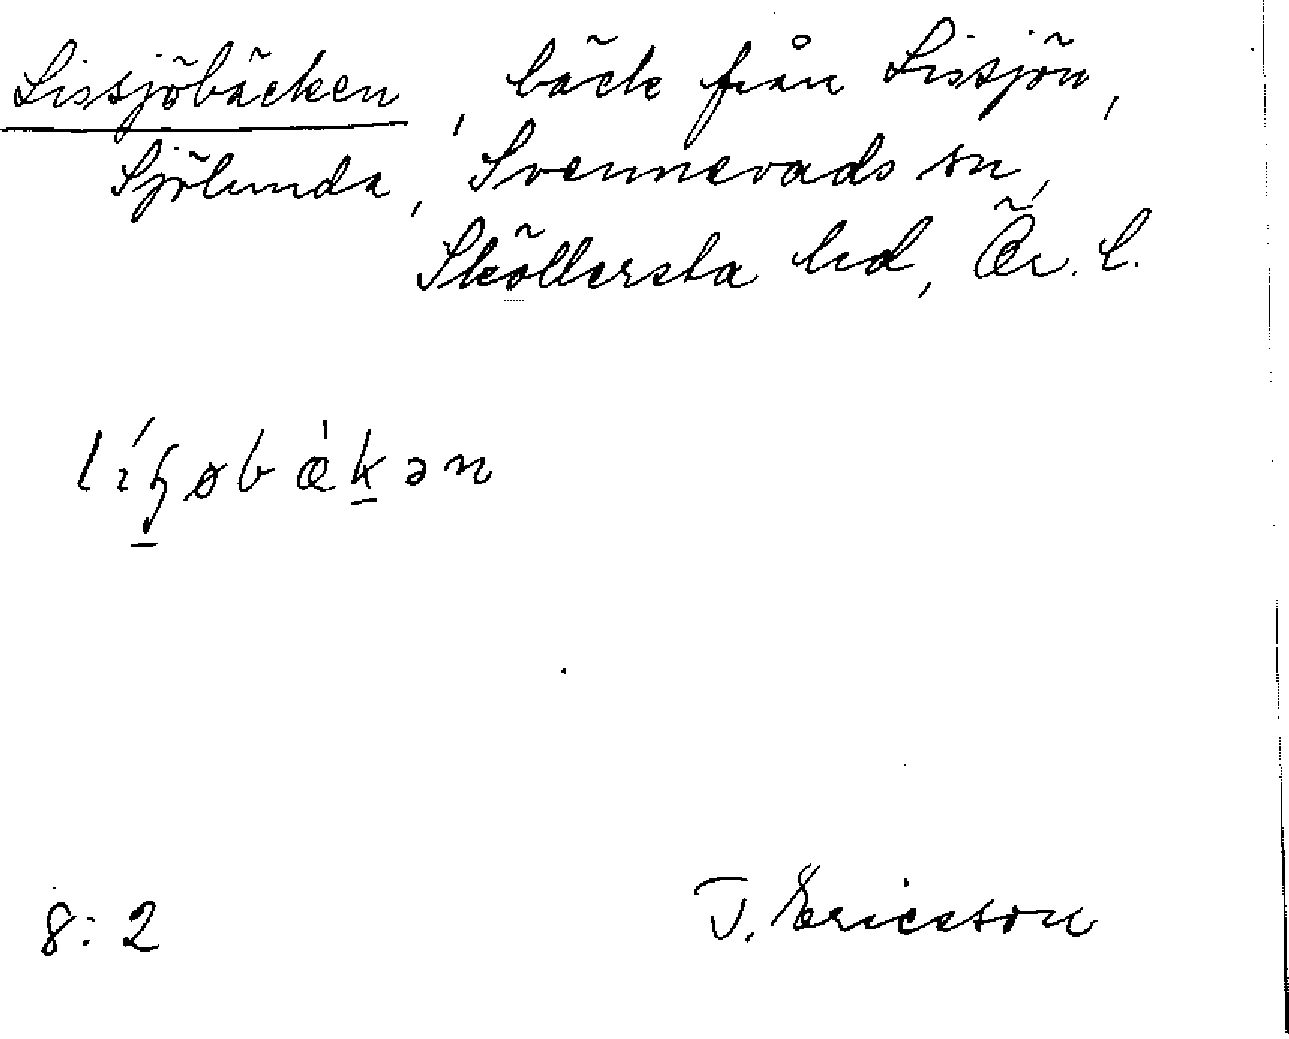 Lissjöbäcken, bäck från Lissjön,
Sjölunda, Svennevads sn,
Sköllersta hd, Ör. l.
8:2
T. Ericsson